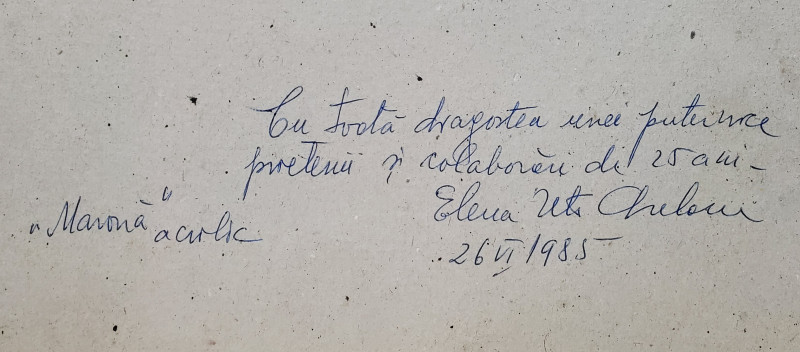 Cu toată dragostea unei puternice
prietenii și colaborări de 25 ani -
Elena Uță Chelaru
"Marină" acrilic
26 VI 1985